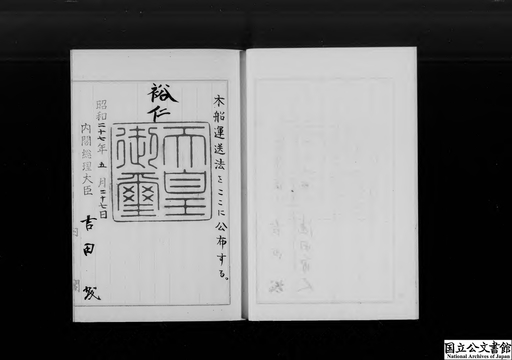 木船運送法をここに公布する。
裕仁
天皇御璽
昭和二十七年五月二十七日
内閣総理大臣
吉田茂
国立公文書館
National Archives of Japan